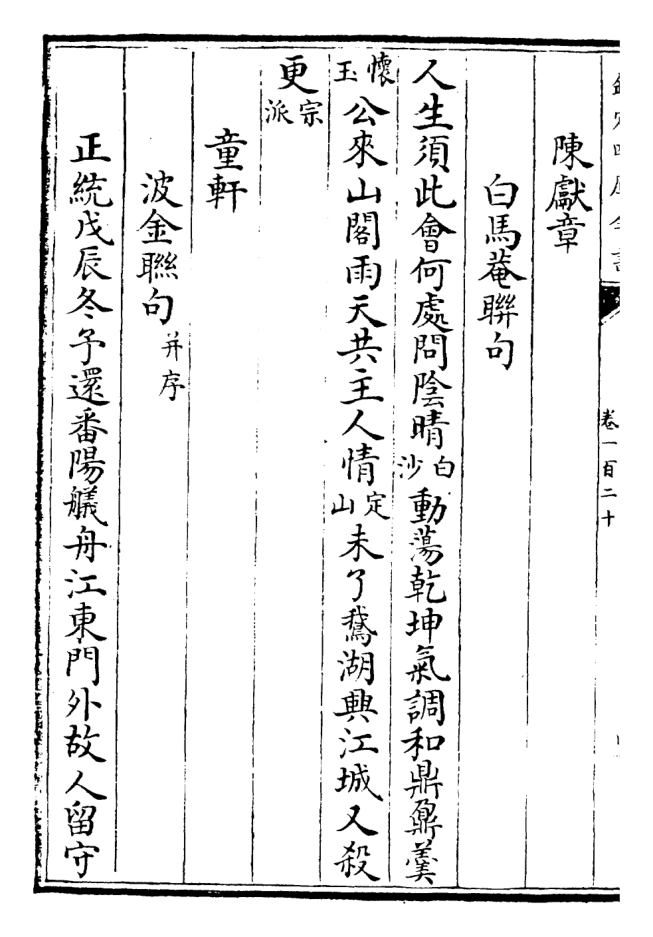 欽定四庫全書 卷一百二十
陳獻章
白馬菴聯句
人生須此會何處問陰晴白沙動蕩乾坤氣調和鼎鼐羹
懷玉公來山閣雨天共主人情定山未了鵞湖興江城又殺
更宗派
童軒
波金聯句并序
正統戊辰冬予還番陽艤舟江東門外故人留守